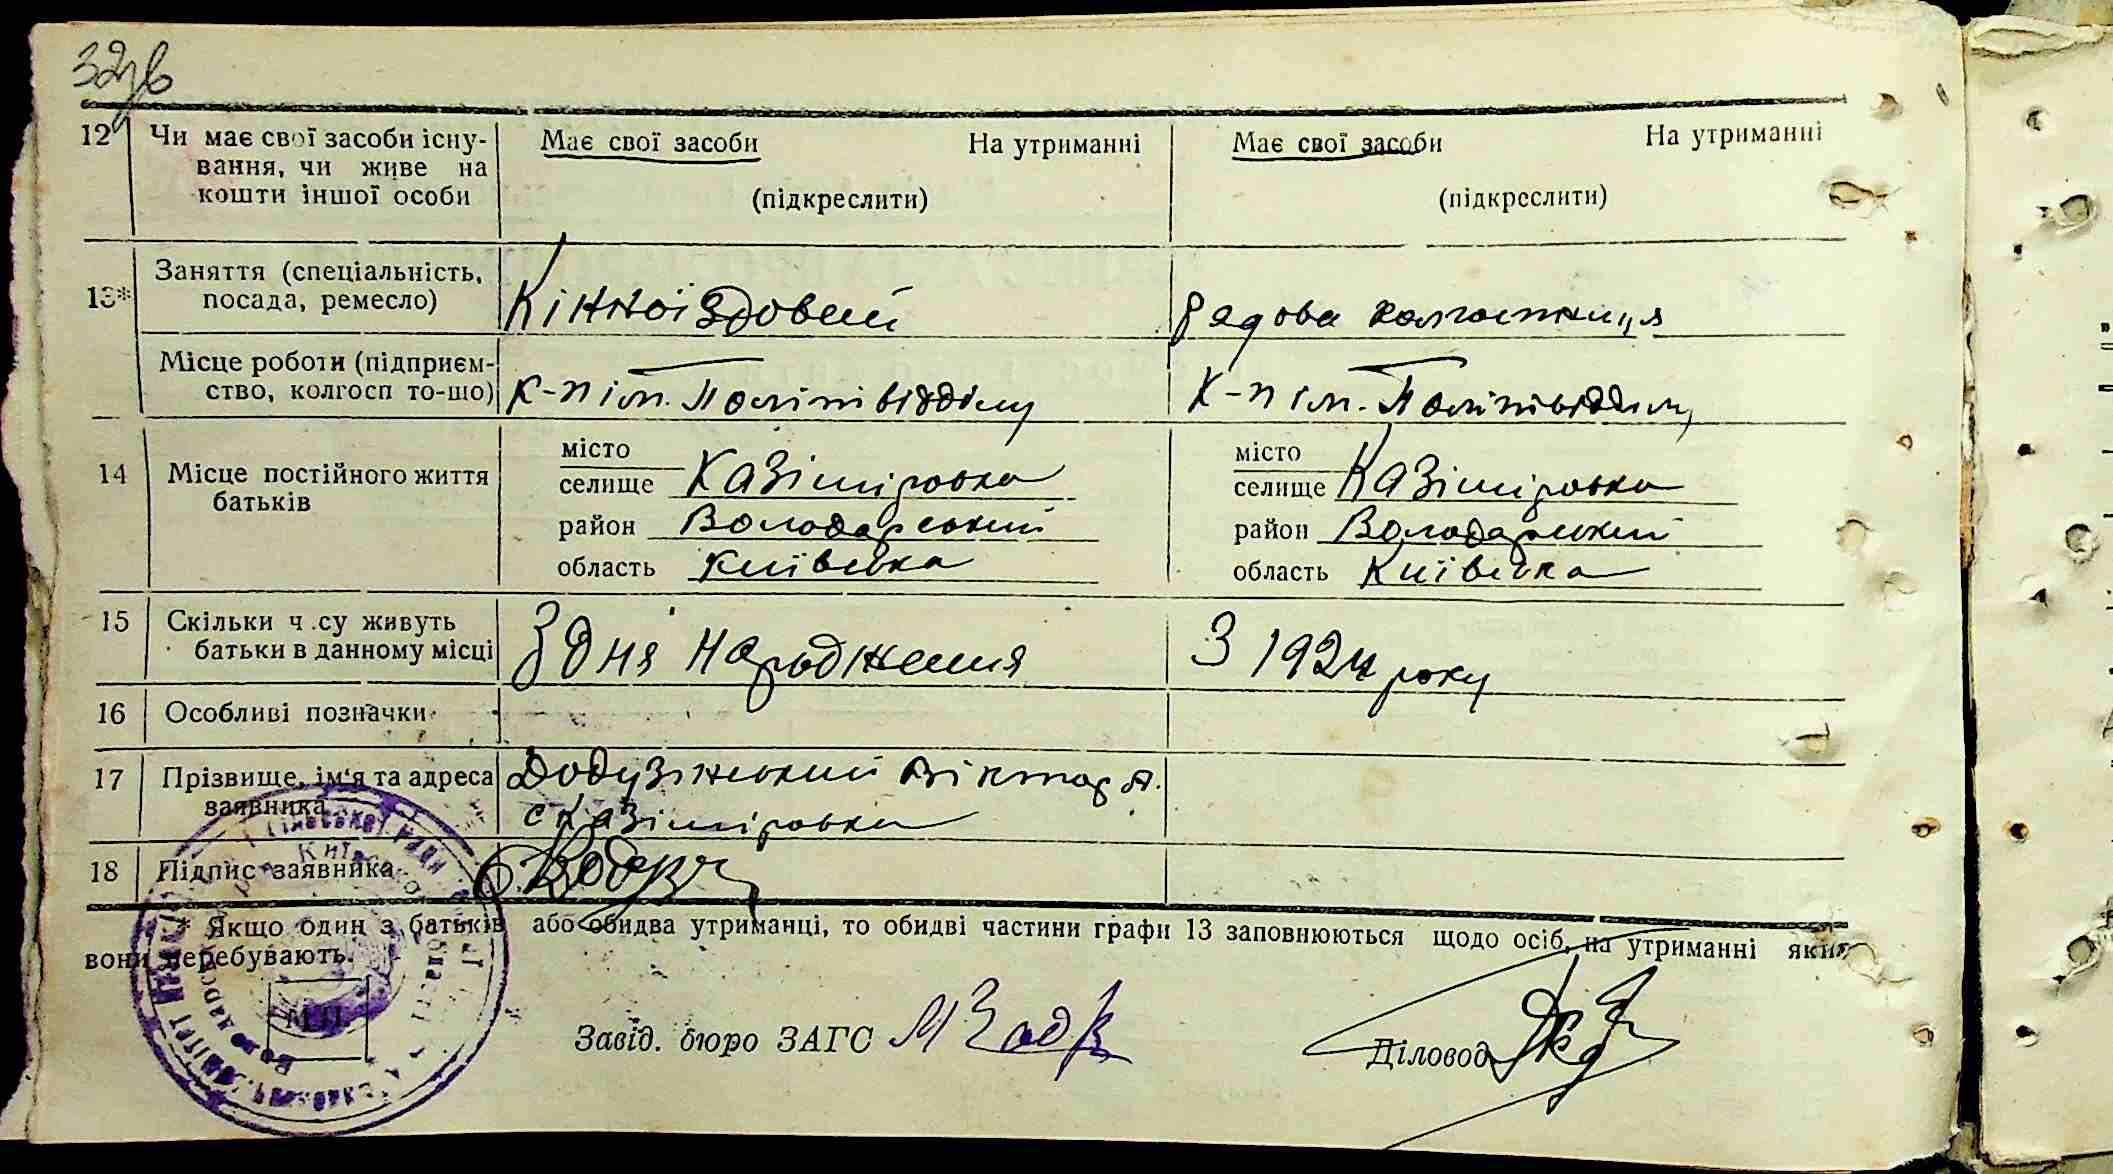 32зв
12 Чи має свої засоби існу- Має свої засоби На утриманні Має свої засоби На утриманні
вання, чи живе на
кошти іншої особи (підкреслити) (підкреслити)
13* Заняття (спеціальність,
посада, ремесло) Кінноїздовий Рядова колгоспниця
Місце роботи (підприєм-
ство, колгосп то-що) К-п ім. Політвідділу К-п ім. Політвідділу
місто місто
14 Місце постійного життя селище Казіміровка селище Казіміровка
батьків
район Володарський район Володарський
область Київська область Київська
15 Скільки ч су живуть
батьки в данному місці З дня народження З 1924 року
16 Особливі позначки
17 Прізвище, ім'я та адреса Віктор А.
заявника с Казіміровка
18 Підпис заявника
* Якщо один з батьків або обидва утриманці, то обидві частини графи 13 заповнюються щодо осіб, на утриманні яких
вони перебувають.
М.П.
Завід. бюро ЗАГС Діловод